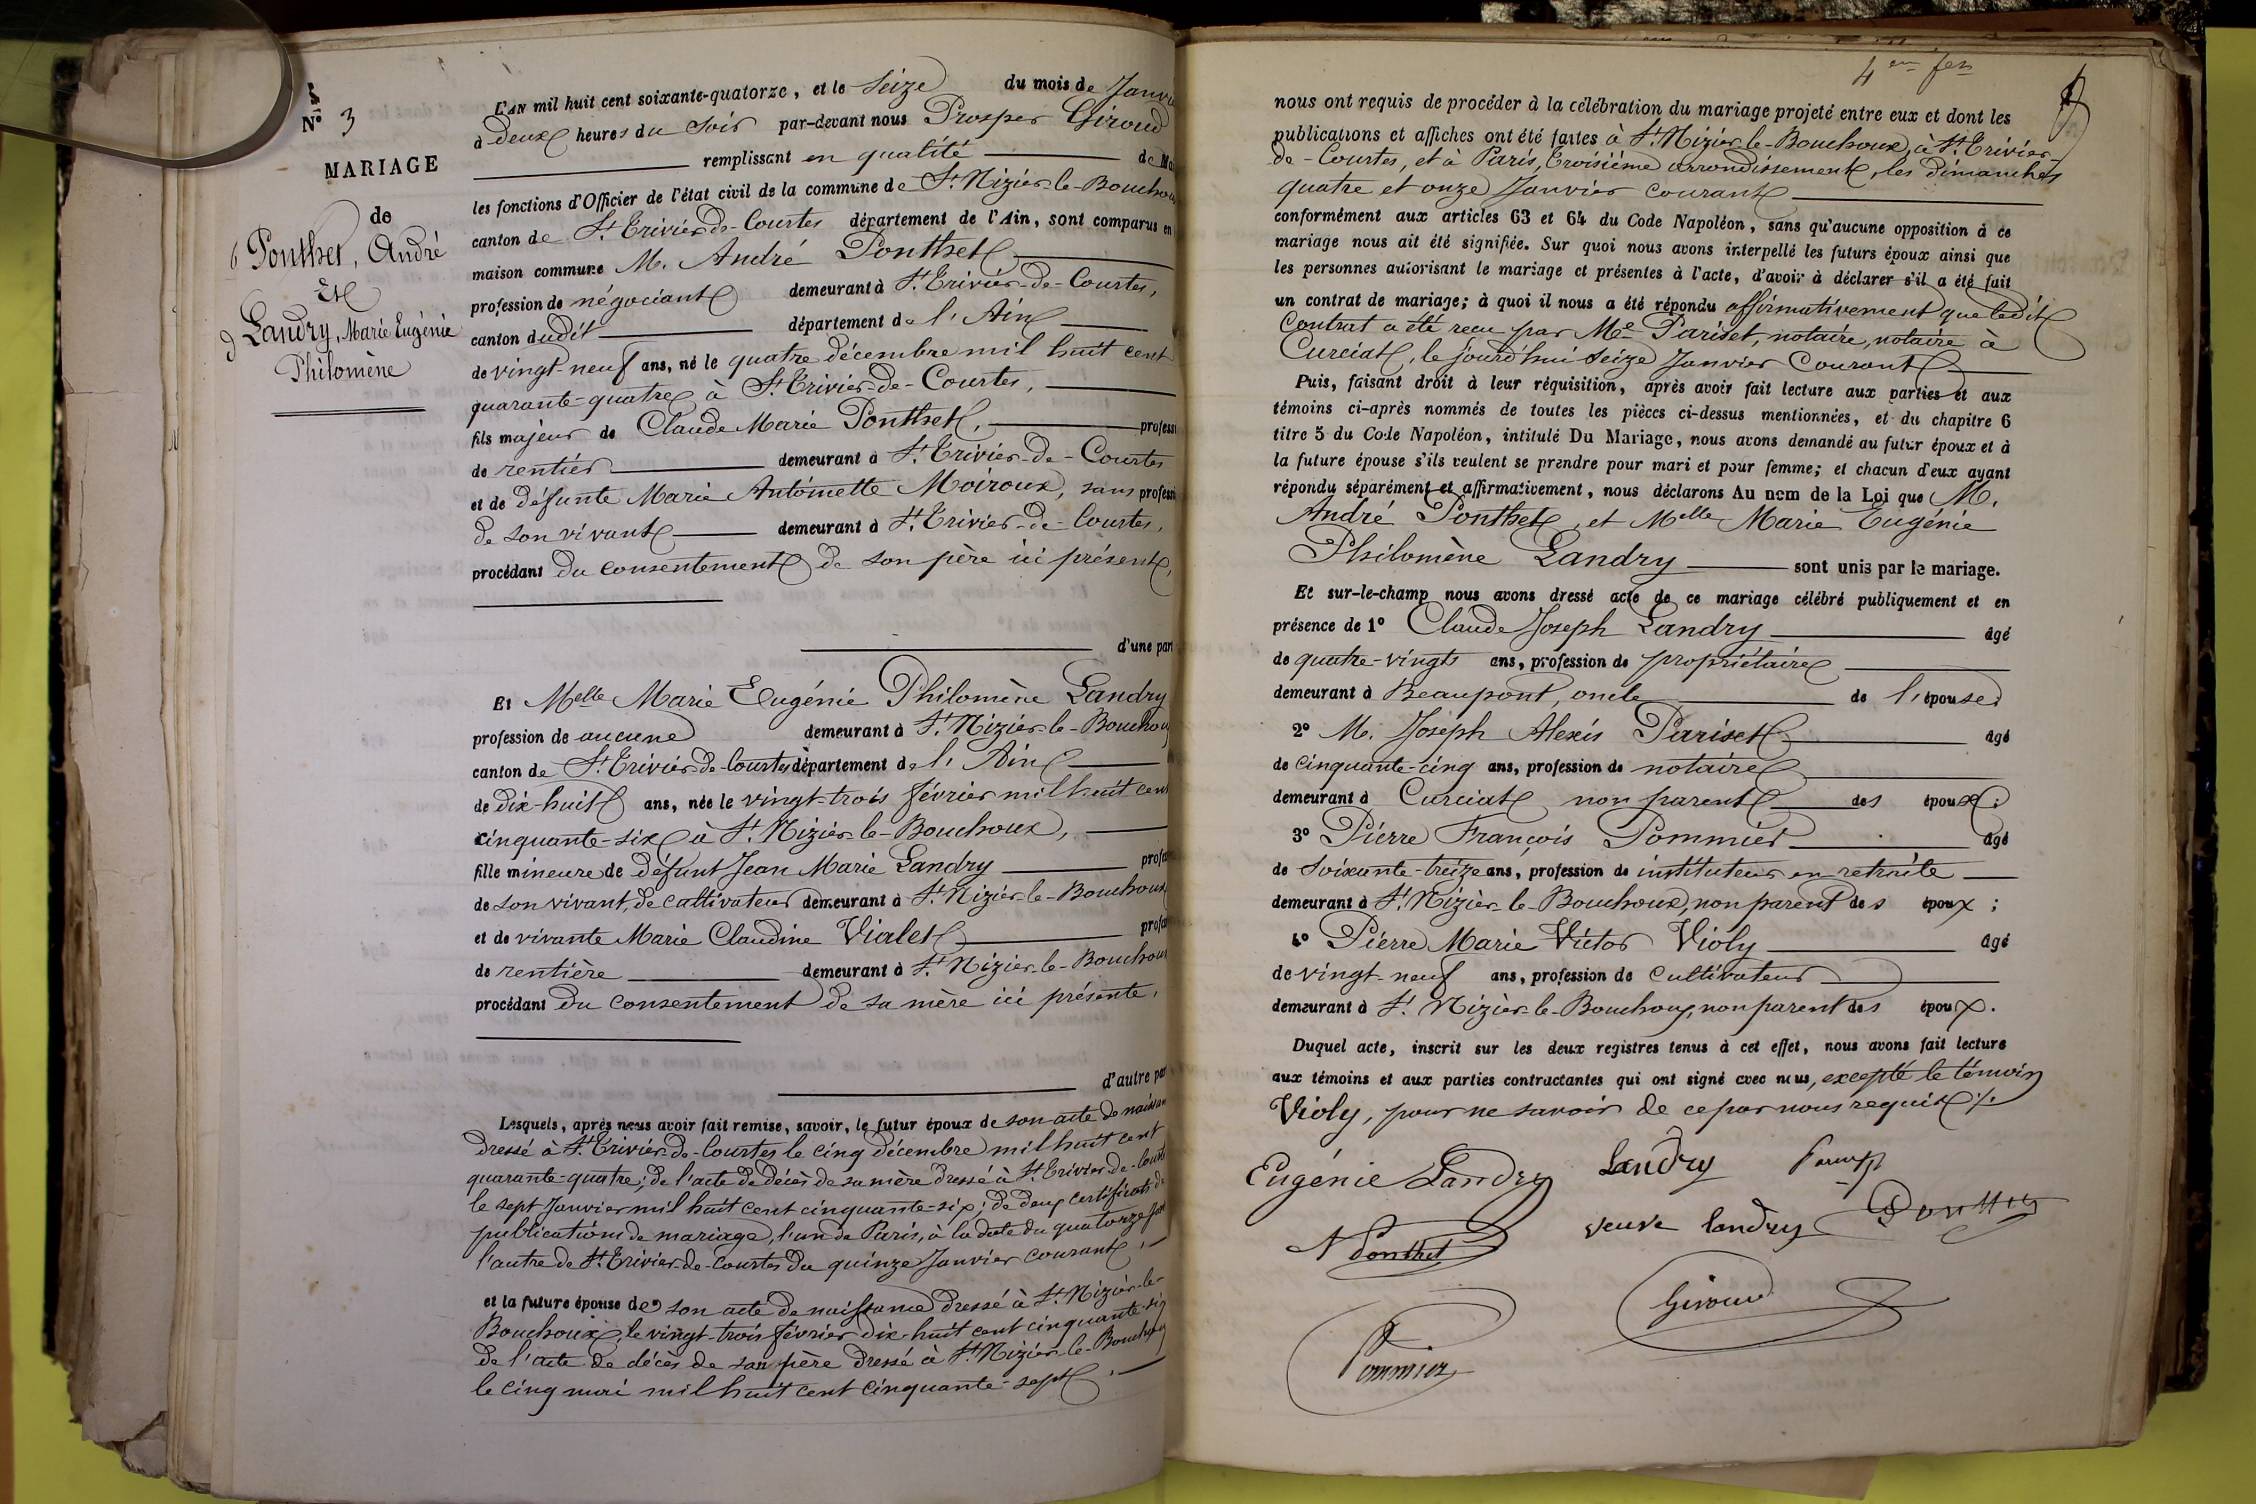 N° 3
MARIAGE
de
Ponthet, André
Et
Landry, Marie Eugénie
Philomène
L'AN mil huit cent soixante-quatorze, et le Seize du mois de Janvi
à deux heures du Soir par-devant nous Prosper Giroud
remplissant en qualité de Mai
les fonctions d'Officier de l'état civil de la commune de St Nizier-le-Bouchou
canton de St Trivier-de-Courtes département de l'Ain, sont comparus en
maison commune M. André Ponthet
profession de négociant demeurant à St Trivier-de-Courtes,
canton dudit département de l'Ain
de vingt-neuf ans, né le quatre décembre mil huit cent
quarante-quatre à St Trivier-de-Courtes,
fils majeur de Claude Marie Ponthet, professi
de rentier demeurant à St Trivier-de-Courtes
et de défunte Marie Antoinette Moiroux, sans professi
de son vivant demeurant à St Trivier-de-Courtes,
procédant du consentement de son père ici présent,
d'une part
Et Melle Marie Eugénie Philomène Landry
profession de aucune demeurant à St Nizier-le-Bouchou
canton de St Trivier-de-Courtes département de l'Ain
de dix-huit ans, née le vingt-trois février mil huit cent
cinquante-six à St Nizier-le-Bouchoux,
fille mineure de défunt Jean Marie Landry profes
de son vivant, de cultivateur demeurant à St Nizier-le-Bouchoux
et de vivante Marie Claudine Vialet profes
de rentière demeurant à St Nizier-le-Bouchoux
procédant du consentement de sa mère ici présente,
d'autre par
Lesquels, après nous avoir fait remise, savoir, le futur époux de son acte de naissan
dressé à St Trivier-de-Courtes le cinq décembre mil huit cent
quarante-quatre; de l'acte de décès de sa mère dressé à St Trivier-de-Court
le sept Janvier mil huit cent cinquante-six; de deux certificats de
publications de mariage, l'un de Paris, à la date du quatorze Jan
l'autre de St Trivier-de-Courtes du quinze Janvier courant,
et la future épouse de son acte de naissance dressé à St Nizier-le-
Bouchoux, le vingt-trois février dix-huit cent cinquante-six
de l'acte de décès de son père dressé à St Nizier-le-Bouchoux
le cinq mai mil huit cent cinquante-sept.
nous ont requis de procéder à la célébration du mariage projeté entre eux et dont les
publications et affiches ont été faites à St Nizier-le-Bouchoux, à St Trivier-
de-Courtes, et à Paris, troisième arrondissement, les dimanches
quatre et onze Janvier courant
conformément aux articles 63 et 64 du Code Napoléon, sans qu'aucune opposition à ce
mariage nous ait été signifiée. Sur quoi nous avons interpellé les futurs époux ainsi que
les personnes autorisant le mariage et présentes à l'acte, d'avoir à déclarer s'il a été fait
un contrat de mariage; à quoi il nous a été répondu affirmativement que ledit
Contrat a été reçu par Me Pariset, notaire, notaire à
Curciat, le jourd'hui Seize Janvier Courant
Puis, faisant droit à leur réquisition, après avoir fait lecture aux parties et aux
témoins ci-après nommés de toutes les pièces ci-dessus mentionnées, et du chapitre 6
titre 5 du Code Napoléon, intitulé Du Mariage, nous avons demandé au futur époux et à
la future épouse s'ils veulent se prendre pour mari et pour femme; et chacun d'eux ayant
répondu séparément et affirmativement, nous déclarons Au nom de la Loi que M.
André Ponthet, et Melle Marie Eugénie
Philomène Landry sont unis par le mariage.
Et sur-le-champ nous avons dressé acte de ce mariage célébré publiquement et en
présence de 1° Claude Joseph Landry âgé
de quatre-vingts ans, profession de propriétaire
demeurant à Beaupont, oncle de l'épouse;
2° M. Joseph Alexis Pariset âgé
de cinquante-cinq ans, profession de notaire
demeurant à Curciat non parent des époux;
3° Pierre François Pommier âgé
de soixante-treize ans, profession de instituteur en retraite
demeurant à St Nizier-le-Bouchoux, non parent des époux;
4° Pierre Marie Victor Violy âgé
de vingt-neuf ans, profession de cultivateur
demeurant à St Nizier-le-Bouchoux, non parent des époux.
Duquel acte, inscrit sur les deux registres tenus à cet effet, nous avons fait lecture
aux témoins et aux parties contractantes qui ont signé avec nous, excepté le témoin
Violy, pour ne savoir de ce par nous requis ./.
Eugénie Landry Landry
A Ponthet veuve landry Ponthet
Giroud
Pommier